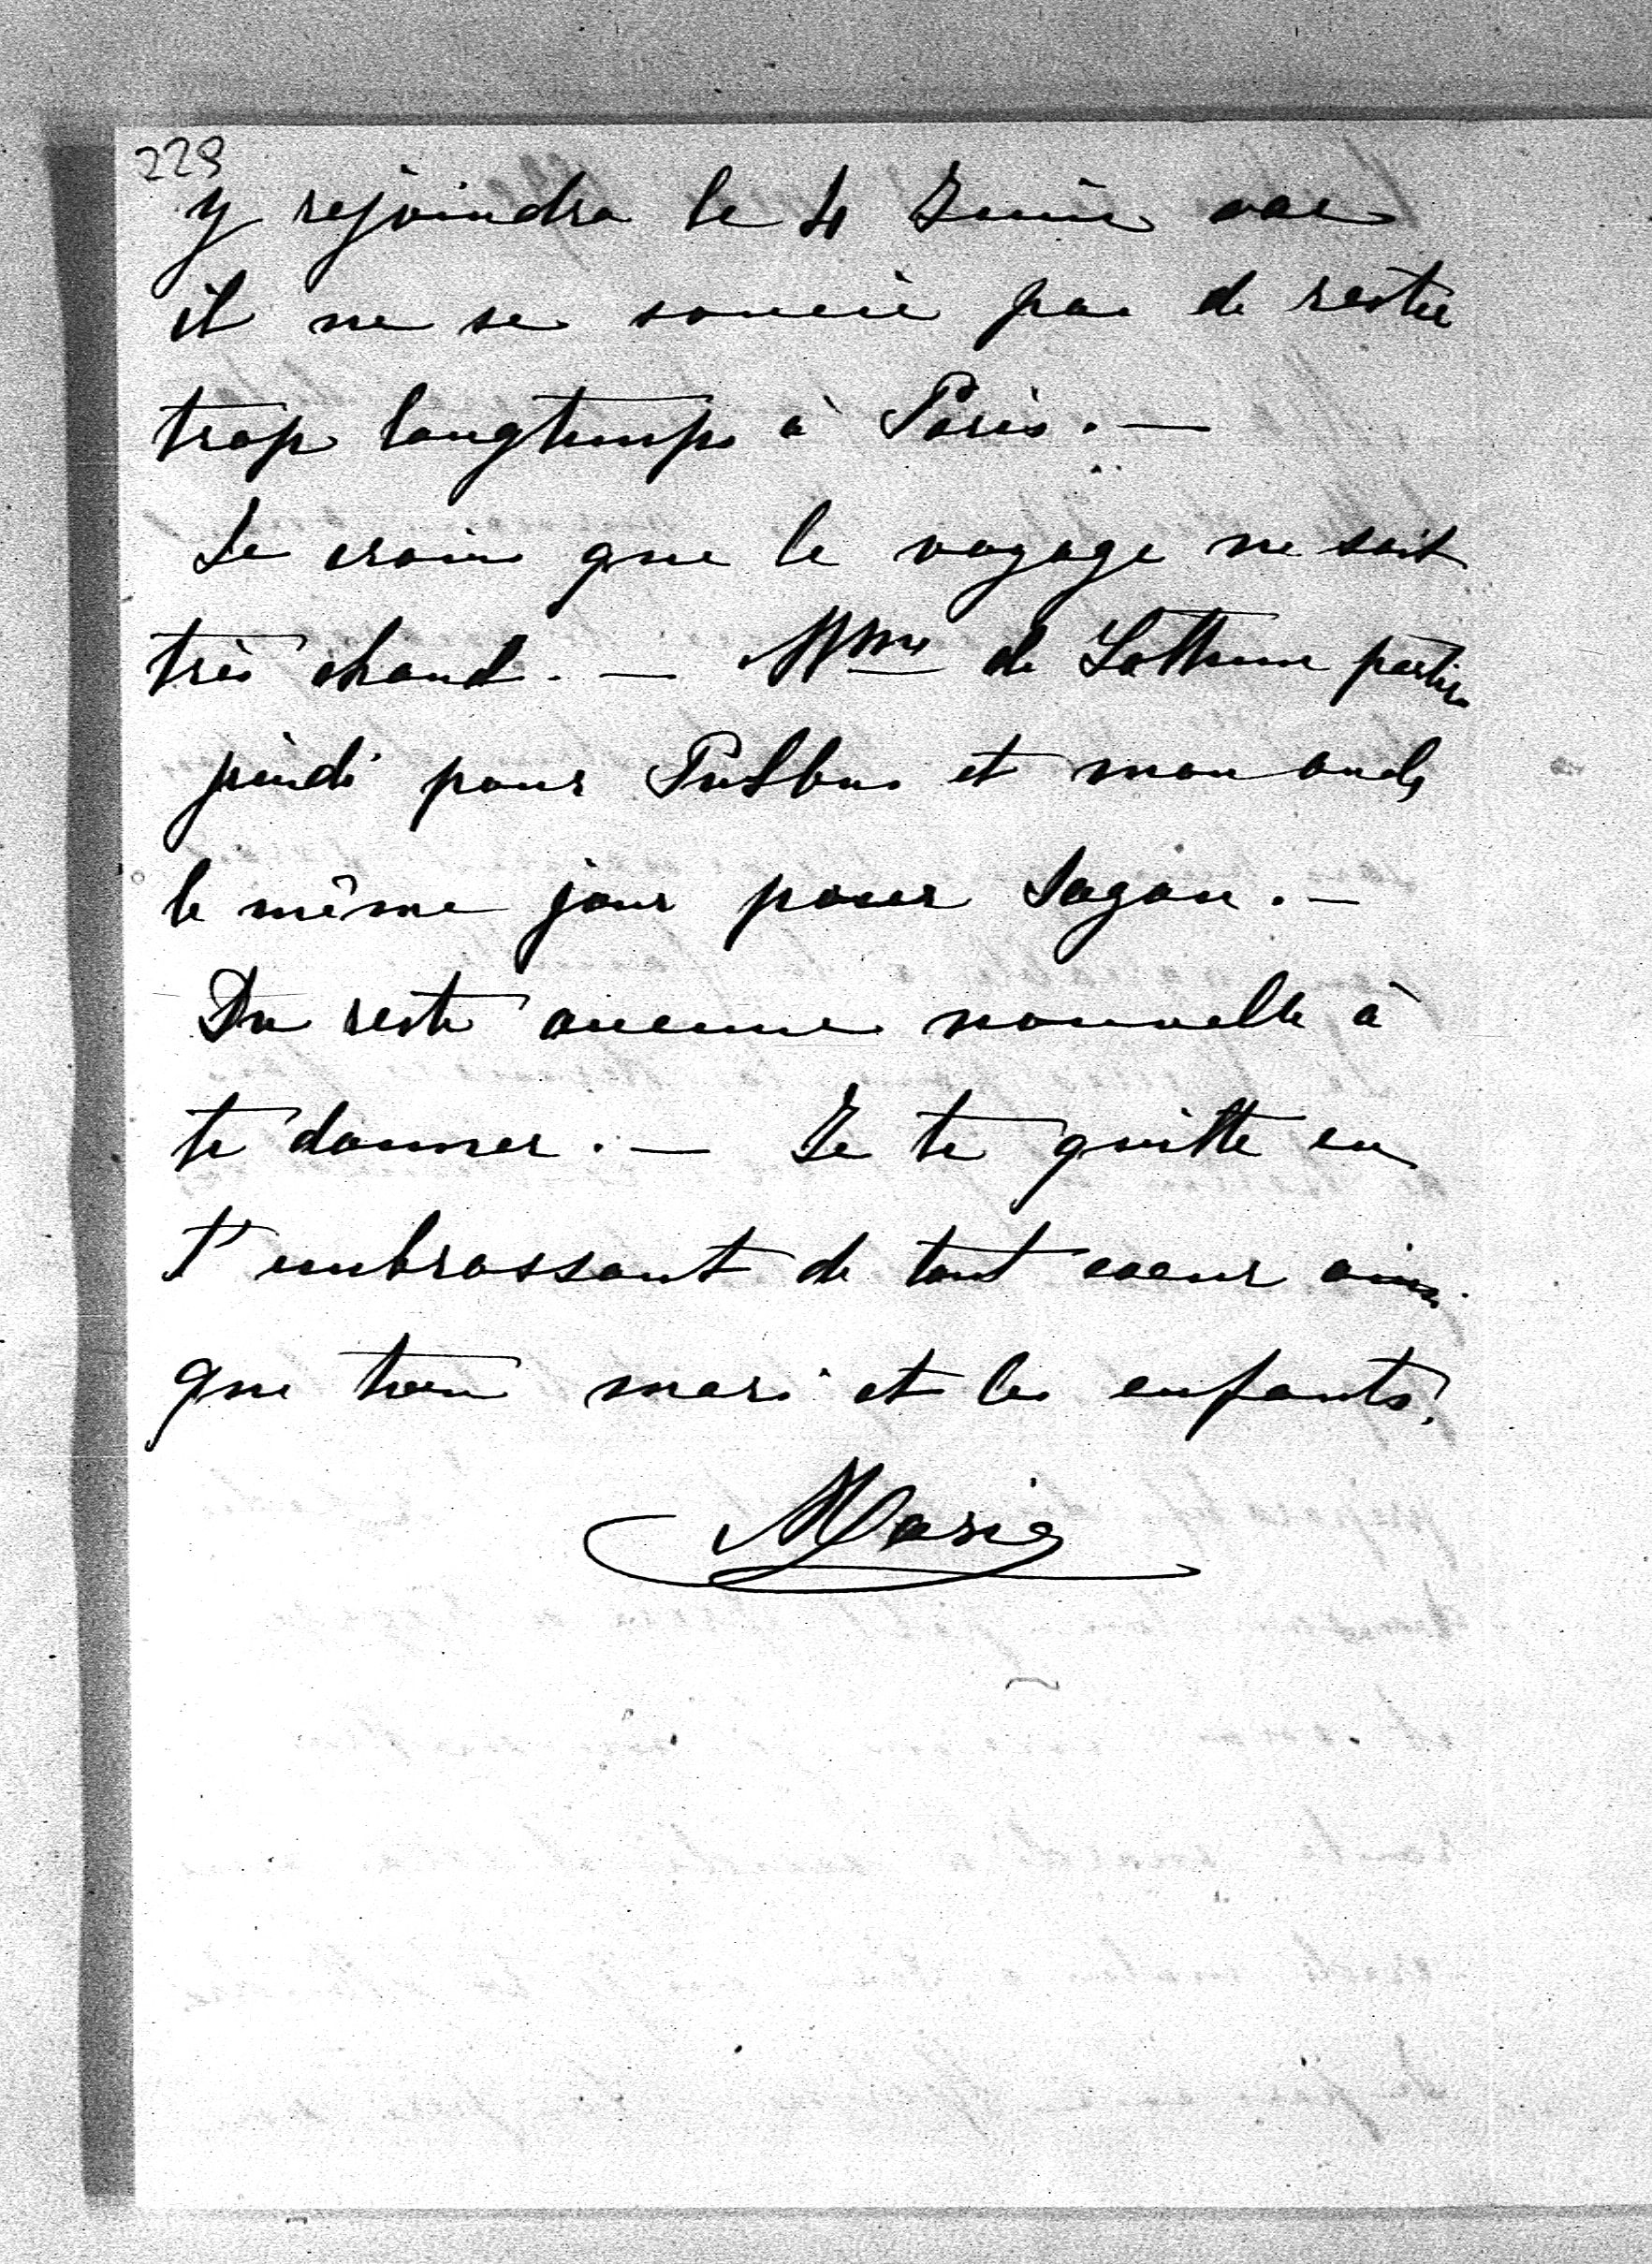 229
y rejoindra le 4 Juin car
il ne se soucie pas de rester
trop longtemps à Paris. —
Je crains que le voyage ne soit
très chaud. — Mme de Lottum partira
jeudi pour Putbus et mon oncle
le même jour pour Sagan. —
Du reste aucune nouvelle à
te donner. — Je te quitte en
t'embrassant de tout coeur ainsi
que ton mari et les enfants.
Marie